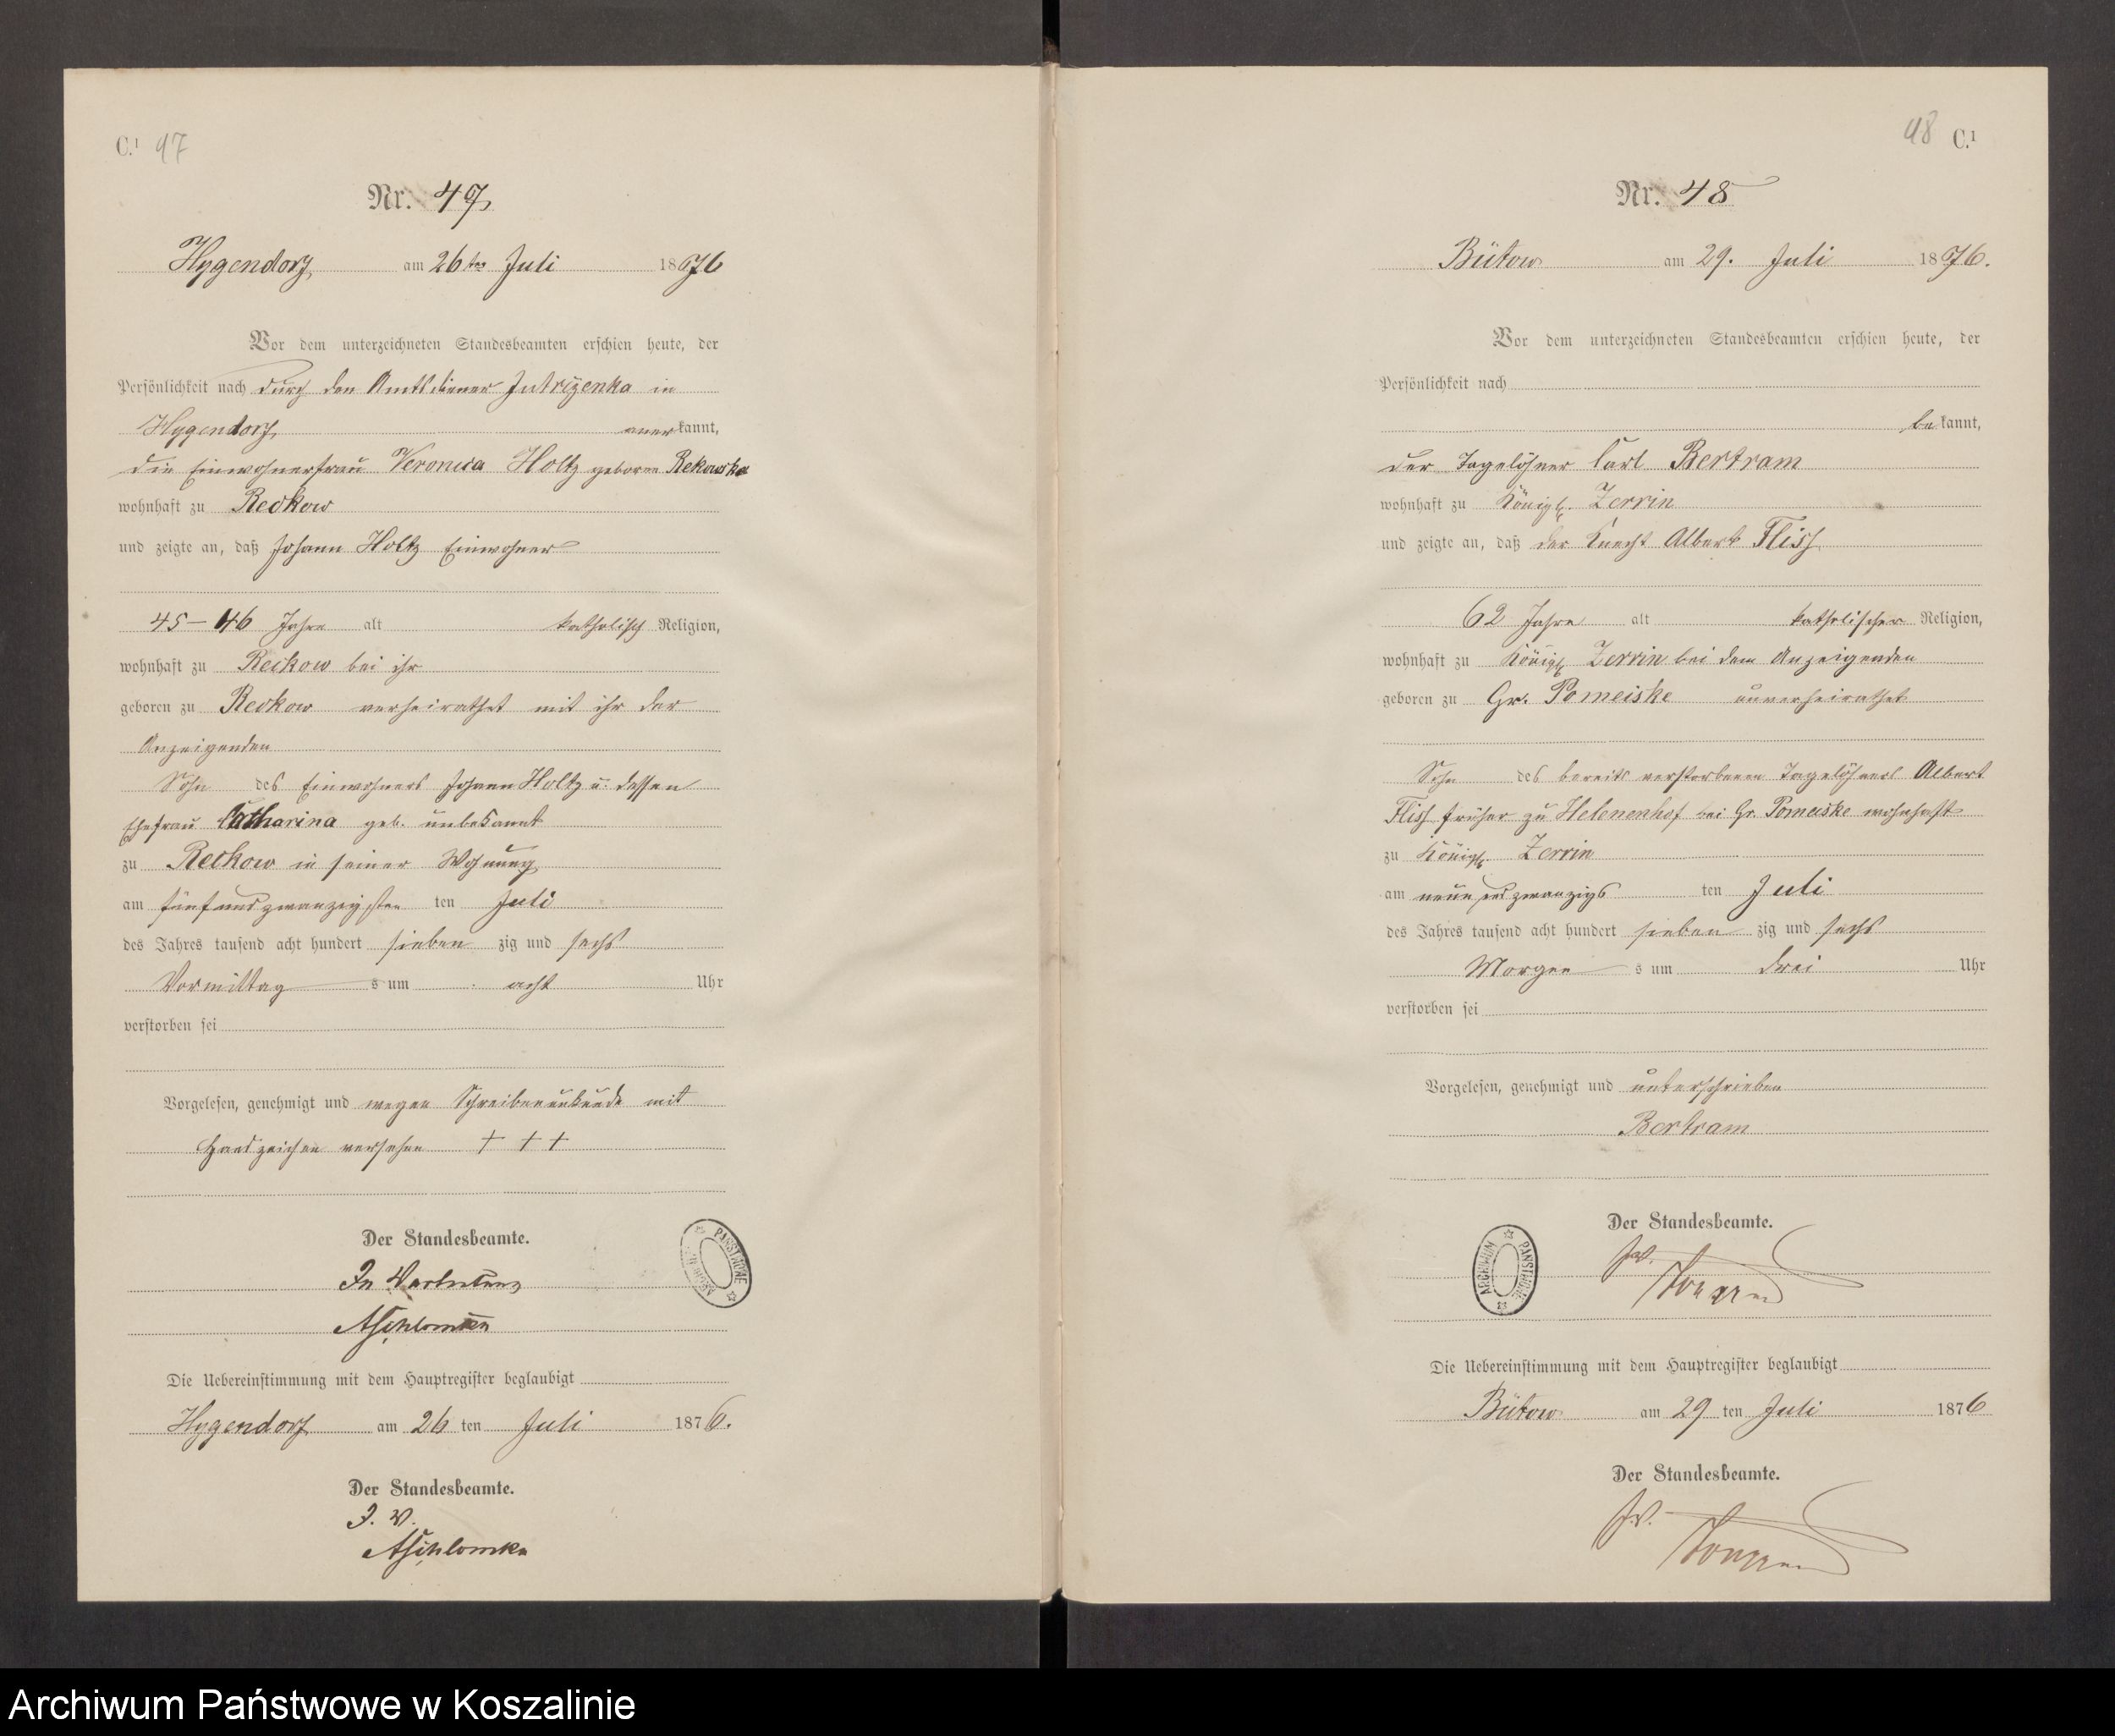 C.¹ 47
Nr. 47
Hygendorf, am 26ten Juli 1876
Vor dem unterzeichneten Standesbeamten erschien heute, der
Persönlichkeit nach durch den Amtsdiener Jutrizenka in
Hygendorf, anerkannt,
die Einwohnerfrau Veronica Holtz geborne Rekowska
wohnhaft zu Reckow
und zeigte an, daß Johann Holtz Einwohner
45–46 Jahre alt katholisch Religion,
wohnhaft zu Reckow bei ihr
geboren zu Reckow verheirathet mit ihr der
Anzeigenden
Sohn des Einwohners Johann Holtz u. dessen
Ehefrau Catharina geb. unbekannt
zu Reckow in seiner Wohnung
am fünfundzwanzigsten ten Juli
des Jahres tausend acht hundert sieben zig und sechs
Vormittag s um acht Uhr
verstorben sei
Vorgelesen, genehmigt und wegen Schreibenunkunde mit
Handzeichen versehen + + +
Der Standesbeamte.
In Vertretung
Die Uebereinstimmung mit dem Hauptregister beglaubigt
Hygendorf am 26 ten Juli 1876.
Der Standesbeamte.
J. V.
48 C.¹
Nr. 48
Bütow am 29. Juli 1876.
Vor dem unterzeichneten Standesbeamten erschien heute, der
Persönlichkeit nach
bekannt,
der Tagelöhner Carl Bertram
wohnhaft zu Königl. Zerrin
und zeigte an, daß der Knecht Albert Flisf
62 Jahre alt katholischer Religion,
wohnhaft zu Königl. Zerrin bei dem Anzeigenden
geboren zu Gr. Pomeiske unverheirathet
Sohn des bereits verstorbenen Tagelöhners Albert
Flisf früher zu Helenenhof bei Gr. Pomeiske wohnhaft
zu Königl. Zerrin
am neun und zwanzigs ten Juli
des Jahres tausend acht hundert sieben zig und sechs
Morgen s um drei Uhr
verstorben sei
Vorgelesen, genehmigt und unterschrieben
Bertram
Der Standesbeamte.
J.V.
ARCHIWUM PAŃSTWOWE
Die Uebereinstimmung mit dem Hauptregister beglaubigt
Bütow am 29 ten Juli 1876
Der Standesbeamte.
J.V.
Archiwum Państwowe w Koszalinie